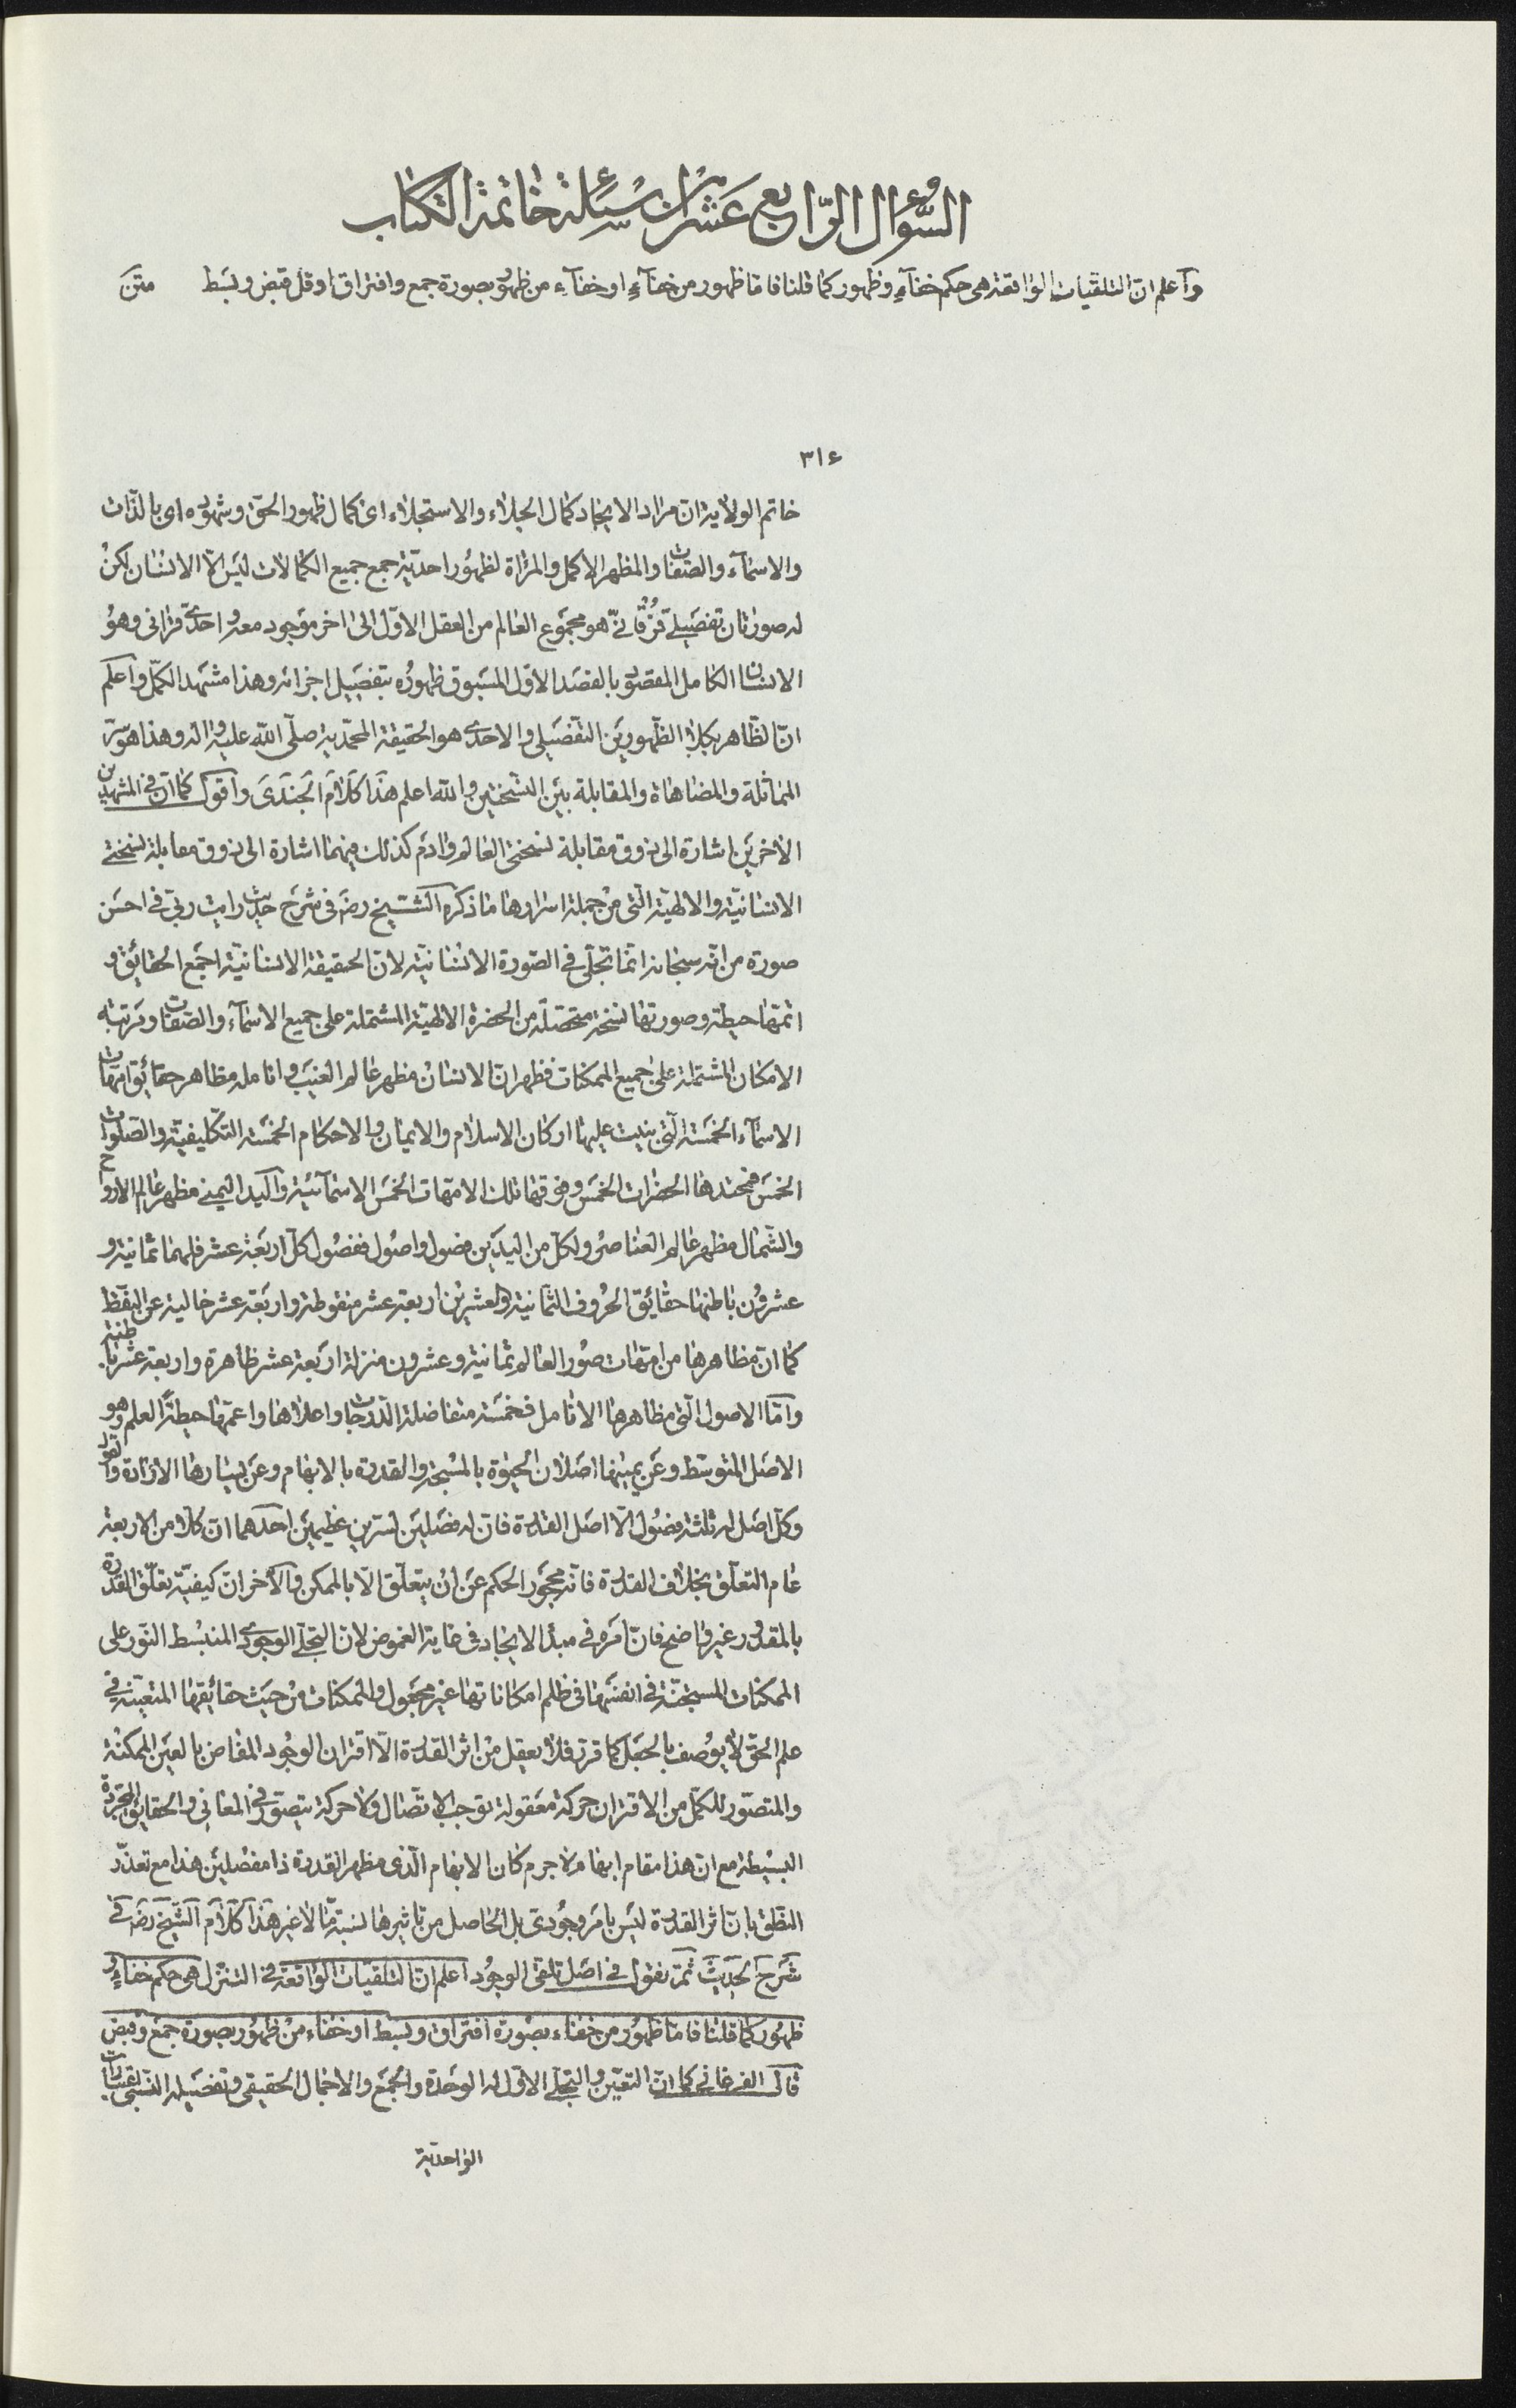 السُّؤال الرّابع عشر من اسئلة خاتمة الكتاب
وآعلم انّ التلقّيات الواقعة هى حكم خفآءٍ وظهور كما قلنا فامّا ظهور من خفآءٍ او خفآء من ظهور بصورة جمع وافتراق او قل قبض وبسط متن
٣١٤
خاتم الولاية انّ مراد الايجاد كمال الجلاء والاستجلاء اى كمال ظهور الحقّ وشهوده اى بالذّات
والاسمآء والصّفات والمظهر الاكمل والمرآة لظهور احديّة جمع جميع الكمالات ليس الّا الانسان لكن
له صورتان تفصيلىّ فرقانىّ هو مجموع العالم من العقل الاوّل الى اخر موجود معه واحدىّ قرآنى وهو
الانسان الكامل المقصود بالقصد الاوّل المسبوق ظهوره بتفصيل اجزائه وهذا مشهد الكمّل واعلم
انّ الظّاهر بكلا الظّهورين التّفصيلى والاحدى هو الحقيقة المحمّديّة صلّى الله عليه واله وهذا هو سرّ
المماثلة والمضاهاة والمقابلة بين النّسختين والله اعلم هذا كلام الجندى واقول كما انّ فى المشهدين
الاخرين اشارة الى ذوق مقابلة نسختى العالم وادم كذلك فيهما اشارة الى ذوق مقابلة نسختى
الانسانيّة والالهيّة الّتى من جملة اسرارها ما ذكره الشّيخ رضه فى شرح حديث رايت ربّى فى احسن
صورة من انّه سبحانه انّما تجلّى فى الصّورة الانسانيّة لانّ الحقيقة الانسانيّة اجمع الحقائق و
اتمّها حيطة وصورتها نسخة متحصّلة من الحضرة الالهيّة المشتملة على جميع الاسمآء والصّفات ومرتبة
الامكان المشتملة على جميع الممكنات فظهر انّ الانسان مظهر عالم الغيب وانامله مظاهر حقائق امّهات
الاسمآء الخمسة الّتى بنيت عليها اركان الاسلام والايمان والاحكام الخمسة التّكليفيّة والصّلوات
الخمس فتحتدها الحضرات الخمس وفوقها تلك الامّهات الخمس الاسمآئيّة واليد اليمنى مظهر عالم الارواح
والشّمال مظهر عالم العناصر ولكلّ من اليدين فصول واصول ففصول كلّ اربعة عشر فلهما ثمانية و
عشرون باطنها حقائق الحروف الثّمانية والعشرين اربعة عشر منقوطة واربعة عشر خالية عن النقط
كما انّ مظاهرها من امّهات صور العالم ثمانية وعشرون منزلة اربعة عشر ظاهرة واربعة عشر باطنة
وامّا الاصول الّتى مظاهرها الانامل فخمسة متفاضلة الدّرجات واعلاها واعمّها حيطةً العلم وهو
الاصل المتوسّط وعن يمينها اصلان الحيوة بالمسبّحة والقدرة بالابهام وعن يسارها الارادة والقول
وكلّ اصل له ثلثة فصول الّا اصل القدرة فانّ له فصلين لسرّين عظيمين احدهما انّ كلّا من الاربعة
عام التعلّق بخلاف القدرة فانّه محجور الحكم عن ان يتعلّق الّا بالممكن والآخر انّ كيفيّة تعلّق القدرة
بالمقدور غير واضح فانّ امره فى مبدأ الايجاد فى غاية الغموض لانّ التجلّى الوجودى المنبسط النّور على
الممكنات المستجنّة فى انفسها فى ظلم امكاناتها غير مجعول والممكنات من حيث حقائقها المتعيّنة فى
علم الحقّ لا يوصف بالجعل كما قرّر فلا يعقل من اثر القدرة الّا اقتران الوجود المفاض بالعين الممكنة
والمتصوّر للكمّل من الاقتران حركة معقولة توجب الاتّصال ولا حركة يتصوّر فى المعانى والحقايق المجرّدة
البسيطة مع انّ هذا مقام ابهام لا جرم كان الابهام الّذى مظهر القدرة ذا مفصلين هذا مع تعذّر
النطق بانّ اثر القدرة ليس بامر وجودى بل الحاصل من تاثيرها نسبة مّا لا غير هذا كلام الشّيخ رضه فى
شرح الحديث ثمّ نقول فى اصل تلقى الوجود اعلم انّ التلقّيات الواقعة فى التنزّل هى حكم خفاءٍ و
ظهور كما قلنا فامّا ظهور من خفاء بصورة افتراق وبسط او خفاء من ظهور بصورة جمع وقبض
قال الفرغانى كما انّ التعيّن والتجلّى الاوّل له الوحدة والجمع والاجمال الحقيقى وتفصيله النّسبى
الواحديّة